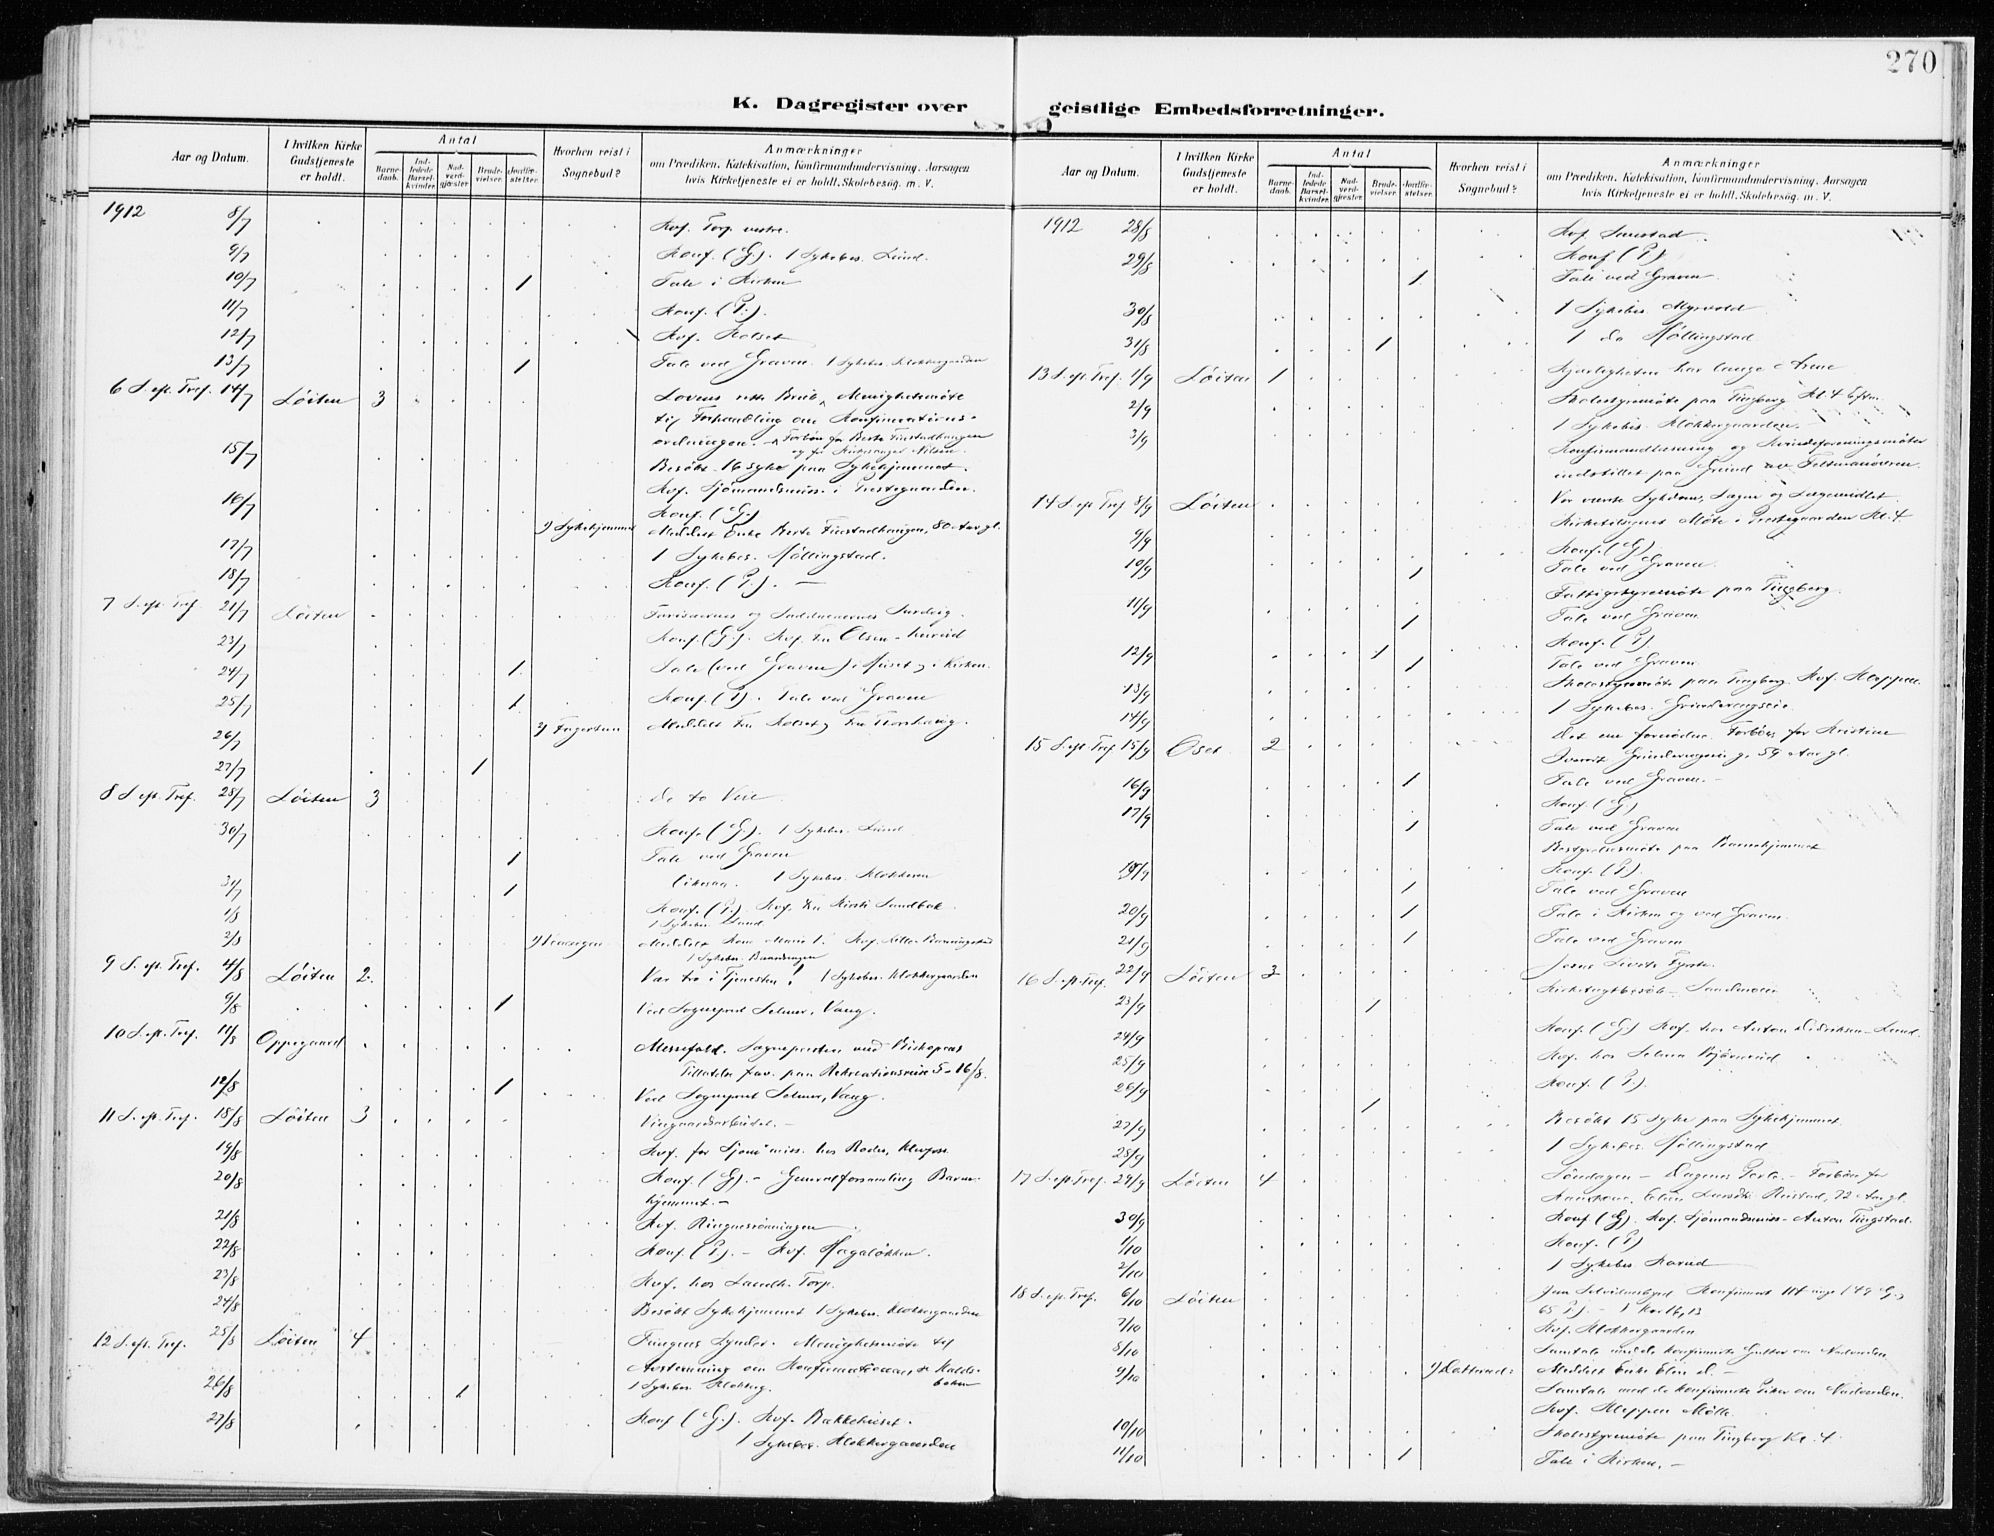 270
K. Dagregister over
geistlige Embedsforretninger.
Aar og Datum.
I hvilken Kirke Gudstjeneste er holdt.
Antal
Barnedaab.
Indledede Barselkvinder.
Nadverdgjæster.
Brudevielser.
Jordfæstelser.
Hvorhen reist i Sognebud?
Anmærkninger
om Prædiken, Katekisation, Konfirmandundervisning, Aarsagen
hvis Kirketjeneste ei er holdt, Skolebesøg. m. V.
1912 8/7 Kvf. Torp vestre.
9/7 Konf. (G). 1 Sykebes. Lund.
10/7 1 Tale i Kirken
11/7 Konf. (P.).
12/7 Kvf. Kolset
13/7 1 Tale ved Graven. 1 Sykebes. Klokkergaarden
6 S. eft. Tref. 14/7 Løiten 3 Lovens rette Brud, Menighetsmøte
til Forhandling om Konfirmations-
ordningen. Forbøn for Berte Finstadhaugen
og for Kirkesanger Nilsen.
15/7 Besøkt 16 syke paa Sykehjemmet.
Kvf. Sjømandsmis. i Prestegaarden.
16/7 Konf. (G.)
1) Sykehjemmet Meddelt Enke Berte Finstadhaugen, 80 Aar gl.
17/7 1 Sykebes. Møllingstad.
18/7 Konf. (P.). –
7 S. eft. Tref. 21/7 Løiten Farisæernes og Sadducæernes Surdeig.
23/7 Konf. (G.). Kvf. Fru Olsen
24/7 1 Tale (ved Graven) i Huset og i Kirken.
25/7 1 Konf. (P). Tale ved Graven
26/7 2) Fagertun Meddelt Fru Kolset og Fru
27/7 1
8 S. eft. Tref. 28/7 Løiten 3 De to Veie
30/7 Konf. (G.). 1 Sykebes. Lund
1 Tale ved Graven
31/7 1 Likesaa. 1 Sykebes. Klokkeren
1/8 Konf. (P.) Kvf. Fru Kirsti Sandbak
1 Sykebes. Lund
2/8 Meddelt Kone Marie
1 Sykebes.
9 S. eft. Tref. 4/8 Løiten 2 Vær tro i Tjenesten! 1 Sykebes. Klokkergaarden
9/8 1 Ved Sogneprest Selmer, Vang.
10 S. eft. Tref. 11/8 Oppegaard Messefald. Sognepresten med Biskopens
Tilladelse frav. paa Rekreationsreise 5–16/8.
12/8 1 Ved Sogneprest Selmer, Vang.
11 S. eft. Tref. 18/8 Løiten 3 Vingaardsarbeidet. –
19/8 Kvf. for Sjømmis. hos
20/8 Konf. (G). – Generalforsamling Barne-
hjemmet. –
21/8 Kvf. Ringnesrønningen
22/8 Konf. (P.). – Kvf. Hagaløkken.
23/8 Kvf. hos Landh. Torp.
24/8 Besøkt Sykehjemmet 1 Sykebes. Klokkergaarden
12 S. eft. Tref. 25/8 Løiten 4 Tungens Synder. Menighetsmøte til
Avstemning om
26/8 1 1 Sykebes. Klokkerg.
27/8 Konf (G.). Kvf. Bækkehuset.
1 Sykebes. Klokkergaarden
Aar og Datum.
I hvilken Kirke Gudstjeneste er holdt.
Antal
Barnedaab.
Indledede Barselkvinder.
Nadverdgjæster.
Brudevielser.
Jordfæstelser.
Hvorhen reist i Sognebud?
Anmærkninger
om Prædiken, Katekisation, Konfirmandundervisning, Aarsagen
hvis Kirketjeneste ei er holdt, Skolebesøg. m. V.
1912 28/8 Kvf.
29/8 Konf (P)
1 Tale ved Graven
30/8 1 Sykebes. Myrvold
31/8 1 1 do Møllingstad
13 S. eft. Tref. 1/9 Løiten 1 Kjærligheten har lange Arme
2/9 Skolestyremøte paa Tingberg Kl. 4 Eftm.
3/9 1 Sykebes. Klokkergaarden. –
Konfirmandlæsning og Kvindeforeningsmøter
indstillet paa Grund av Feltmanøvren.
14 S. eft. Tref 8/9 Løiten Vor værste Sykdom, Sagne og Lægemidlet
Kirketilsynets Møte i Prestegaarden Kl. 4
9/9 Konf. (G)
10/9 1 Tale ved Graven.
Fattigstyremøte paa Tingberg.
11/9 1 Tale ved Graven
Konf. (P)
12/9 1 1 Tale ved Graven
13/9 Skolestyremøte paa Tingberg. Kvf. Kleppen
14/9 1 Sykebes.
15 S. eft. Tref 15/9 Oset 2 Det ene fornødne. Forbøn for Kristine
59 Aar gl.
16/9 1 Tale ved Graven. –
17/9 Konf. (G)
1 Tale ved Graven
Bestyrelsesmøte paa Barnehjemmet
19/9 Konf. (P.).
1 Tale ved Graven
20/9 1 Tale i Kirken og ved Graven.
21/9 1 Tale ved Graven
16 S. eft. Tref. 22/9 Løiten 3 Jesus Livets Fyrste.
23/9 1
24/9 Konf. (G) Kvf. hos Anton Didriksen – Lund.
25/9 Kvf. hos Selma
26/9 Konf. (P.).
1
27/9 Besøkt 15 syke paa Sykehjemmet
28/9 1 Sykebes. Møllingstad
17 S. eft. Tref. 29/9 Løiten 4 Søndagen – Dagenes Perle. – Forbøn for
72 Aar gl.
30/9 Konf (G). Kvf. Sjømandsmis – Anton Tingstad.
1/10 Konf. (P)
2/10 1 Sykebes.
18 S. eft. Tref. 6/10 Løiten Konfirmert 114 unge (49 G.,
65 P.). –
7/10 Kvf. Klokkergaarden
8/10 Samtale med de konfirmerte Gutter om Nadverden
9/10 Meddelt Enke Elin D. –
Samtale med de konfirmerte Piker om Nadverden.
Kvf. Kleppen Mølle.
10/10 Skolestyremøte paa Tingberg Kl. 4.
11/10 1 Tale i Kirken. –